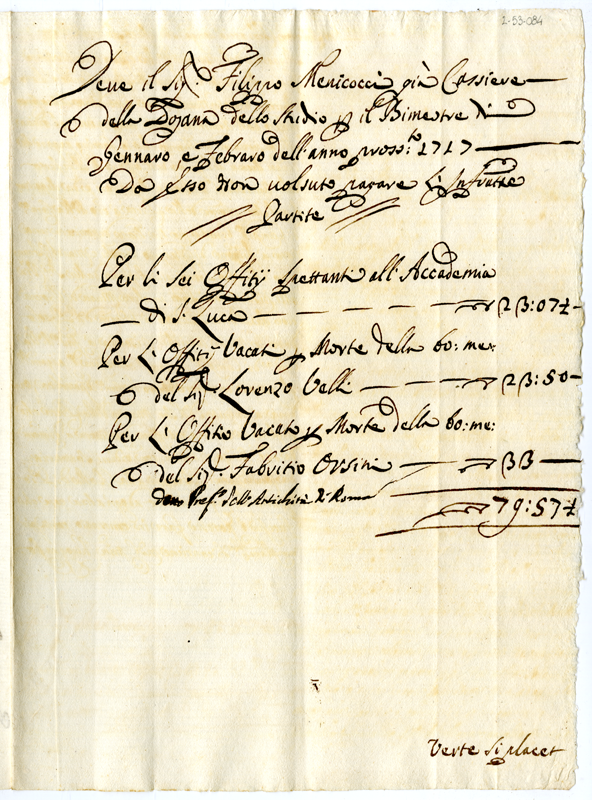 2-53-084
Deve il Sig.r Filippo Menicocci già Cassiere
della Dogana dello Studio p il Bimestre di
Gennaro, e Febraro dell'anno pross:o 1717
Da esso non volsuto pagare l'infratte
Partite
Per li sei Offitij spettanti all'Accademia
di S. Luca 23:07½
Per l'Offitij Vacati p Morte della bo: me:
del Sig.r Lorenzo Valli 23:50
Per l'Offitio Vacato p Morte della bo: me:
del Sig.r Fabritio Orsini 33
Pref.o dell'Antichità di Roma
79:57½
Verte si placet